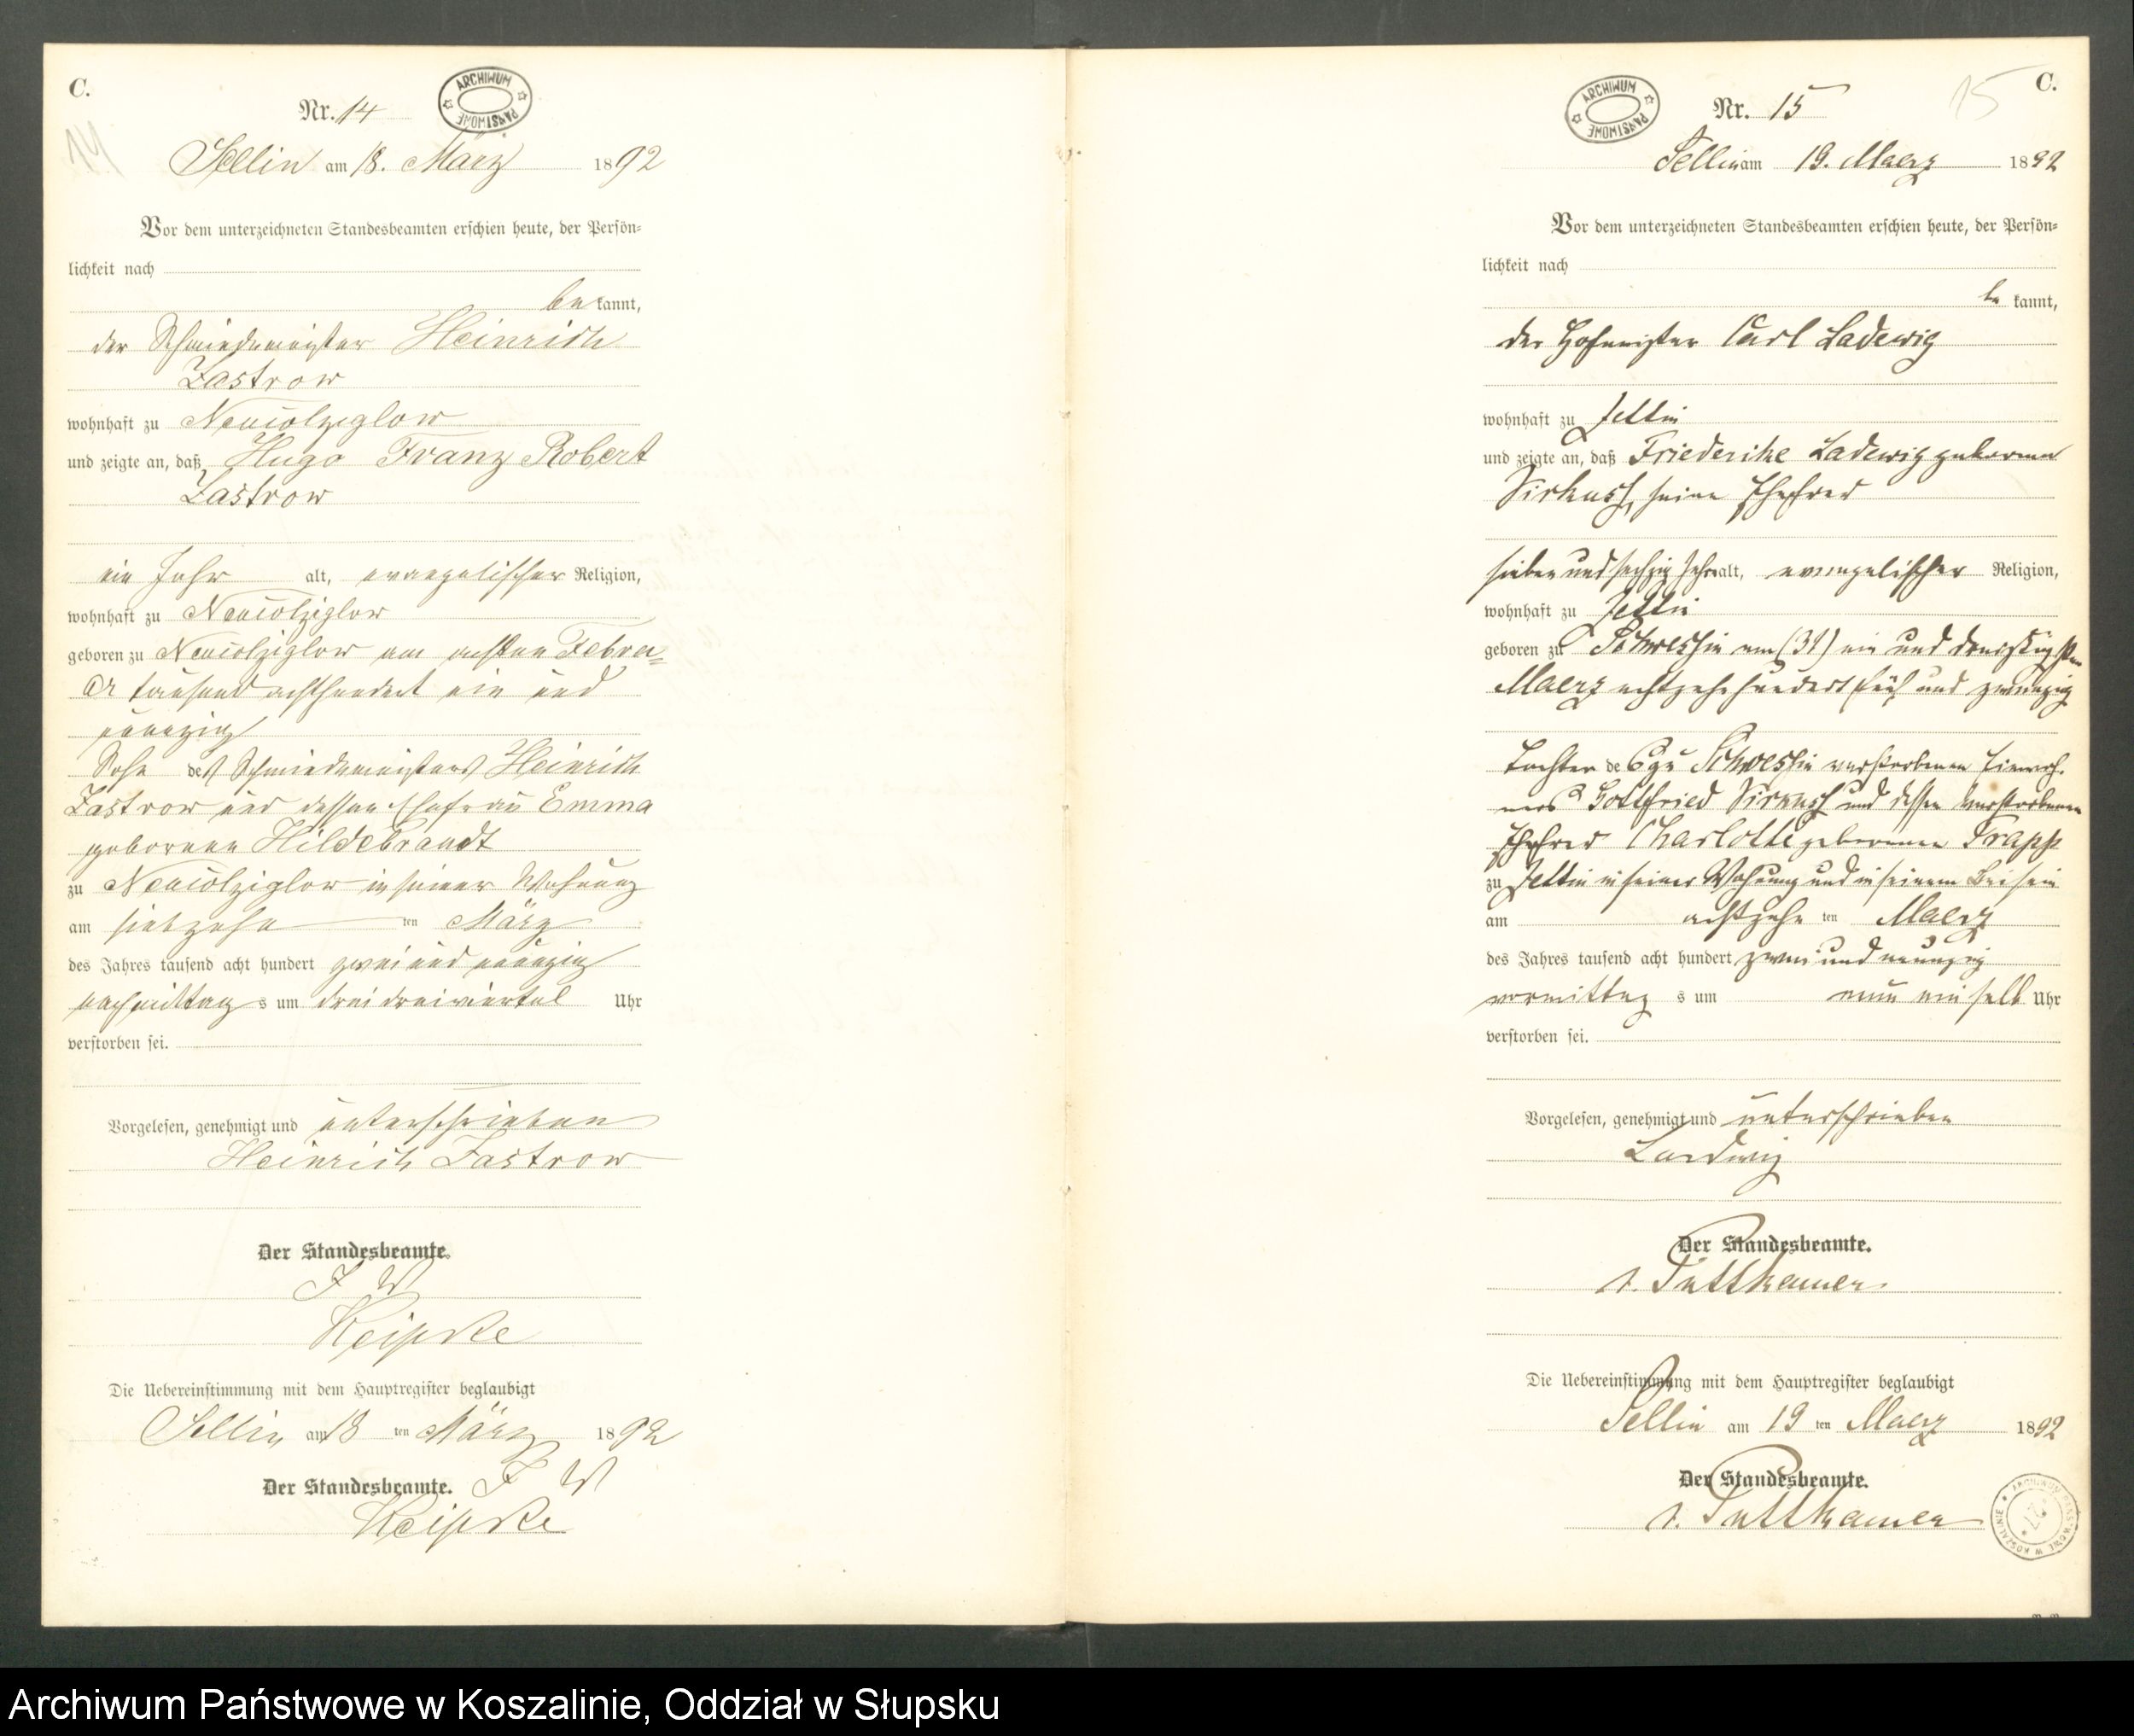 C.
14
Nr. 14
ARCHIWUM PAŃSTWOWE
Sellin am 18. März 1892
Vor dem unterzeichneten Standesbeamten erschien heute, der Persön=
lichkeit nach
be kannt,
der Schmiedemeister Heinrich
Zastrow
wohnhaft zu Neucolziglow
und zeigte an, daß Hugo Franz Robert
Zastrow
ein Jahr alt, evangelischer Religion,
wohnhaft zu Neucolziglow
geboren zu Neucolziglow am achten Februa=
r tausend achthundert ein und
neunzig
Sohn des Schmiedemeisters Heinrich
Zastrow und dessen Ehefrau Emma
geborenen Hildebrandt
zu Neucolziglow in seiner Wohnung
am siebzehn ten März
des Jahres tausend acht hundert zwei und neunzig
nachmittag s um drei dreiviertel Uhr
verstorben sei.
Vorgelesen, genehmigt und unterschrieben
Heinrich Zastrow
Der Standesbeamte.
I V
Die Uebereinstimmung mit dem Hauptregister beglaubigt
Sellin am 18 ten März 1892
Der Standesbeamte. I V
C.
15
Nr. 15
ARCHIWUM PAŃSTWOWE
Sellin am 19. Maerz 1892
Vor dem unterzeichneten Standesbeamten erschien heute, der Persön=
lichkeit nach
be kannt,
der Hofmeister Carl Ladewig
wohnhaft zu Sellin
und zeigte an, daß Friederike Ladewig geborene
seine Ehefrau
sieben und sechzig Jahre alt, evangelischer Religion,
wohnhaft zu Sellin
geboren zu Schwessin am (31) ein und dreissigsten
Maerz achtzehnhundert fünf und zwanzig
Tochter des zu Schwessin verstorbenen Einwoh-
ners Gottfried und dessen verstorbenen
Ehefrau Charlotte geborenen Trapp
zu Sellin in seiner Wohnung und in seinem Beisein
am achtzehn ten Maerz
des Jahres tausend acht hundert zwei und neunzig
vormittag s um neun ein halb Uhr
verstorben sei.
Vorgelesen, genehmigt und unterschrieben
Ladewig
Der Standesbeamte.
v. Puttkamer
Die Uebereinstimmung mit dem Hauptregister beglaubigt
Sellin am 19 ten Maerz 1892
Der Standesbeamte.
v. Puttkamer
ARCHIWUM PAŃSTWOWE W KOSZALINIE
Archiwum Państwowe w Koszalinie, Oddział w Słupsku